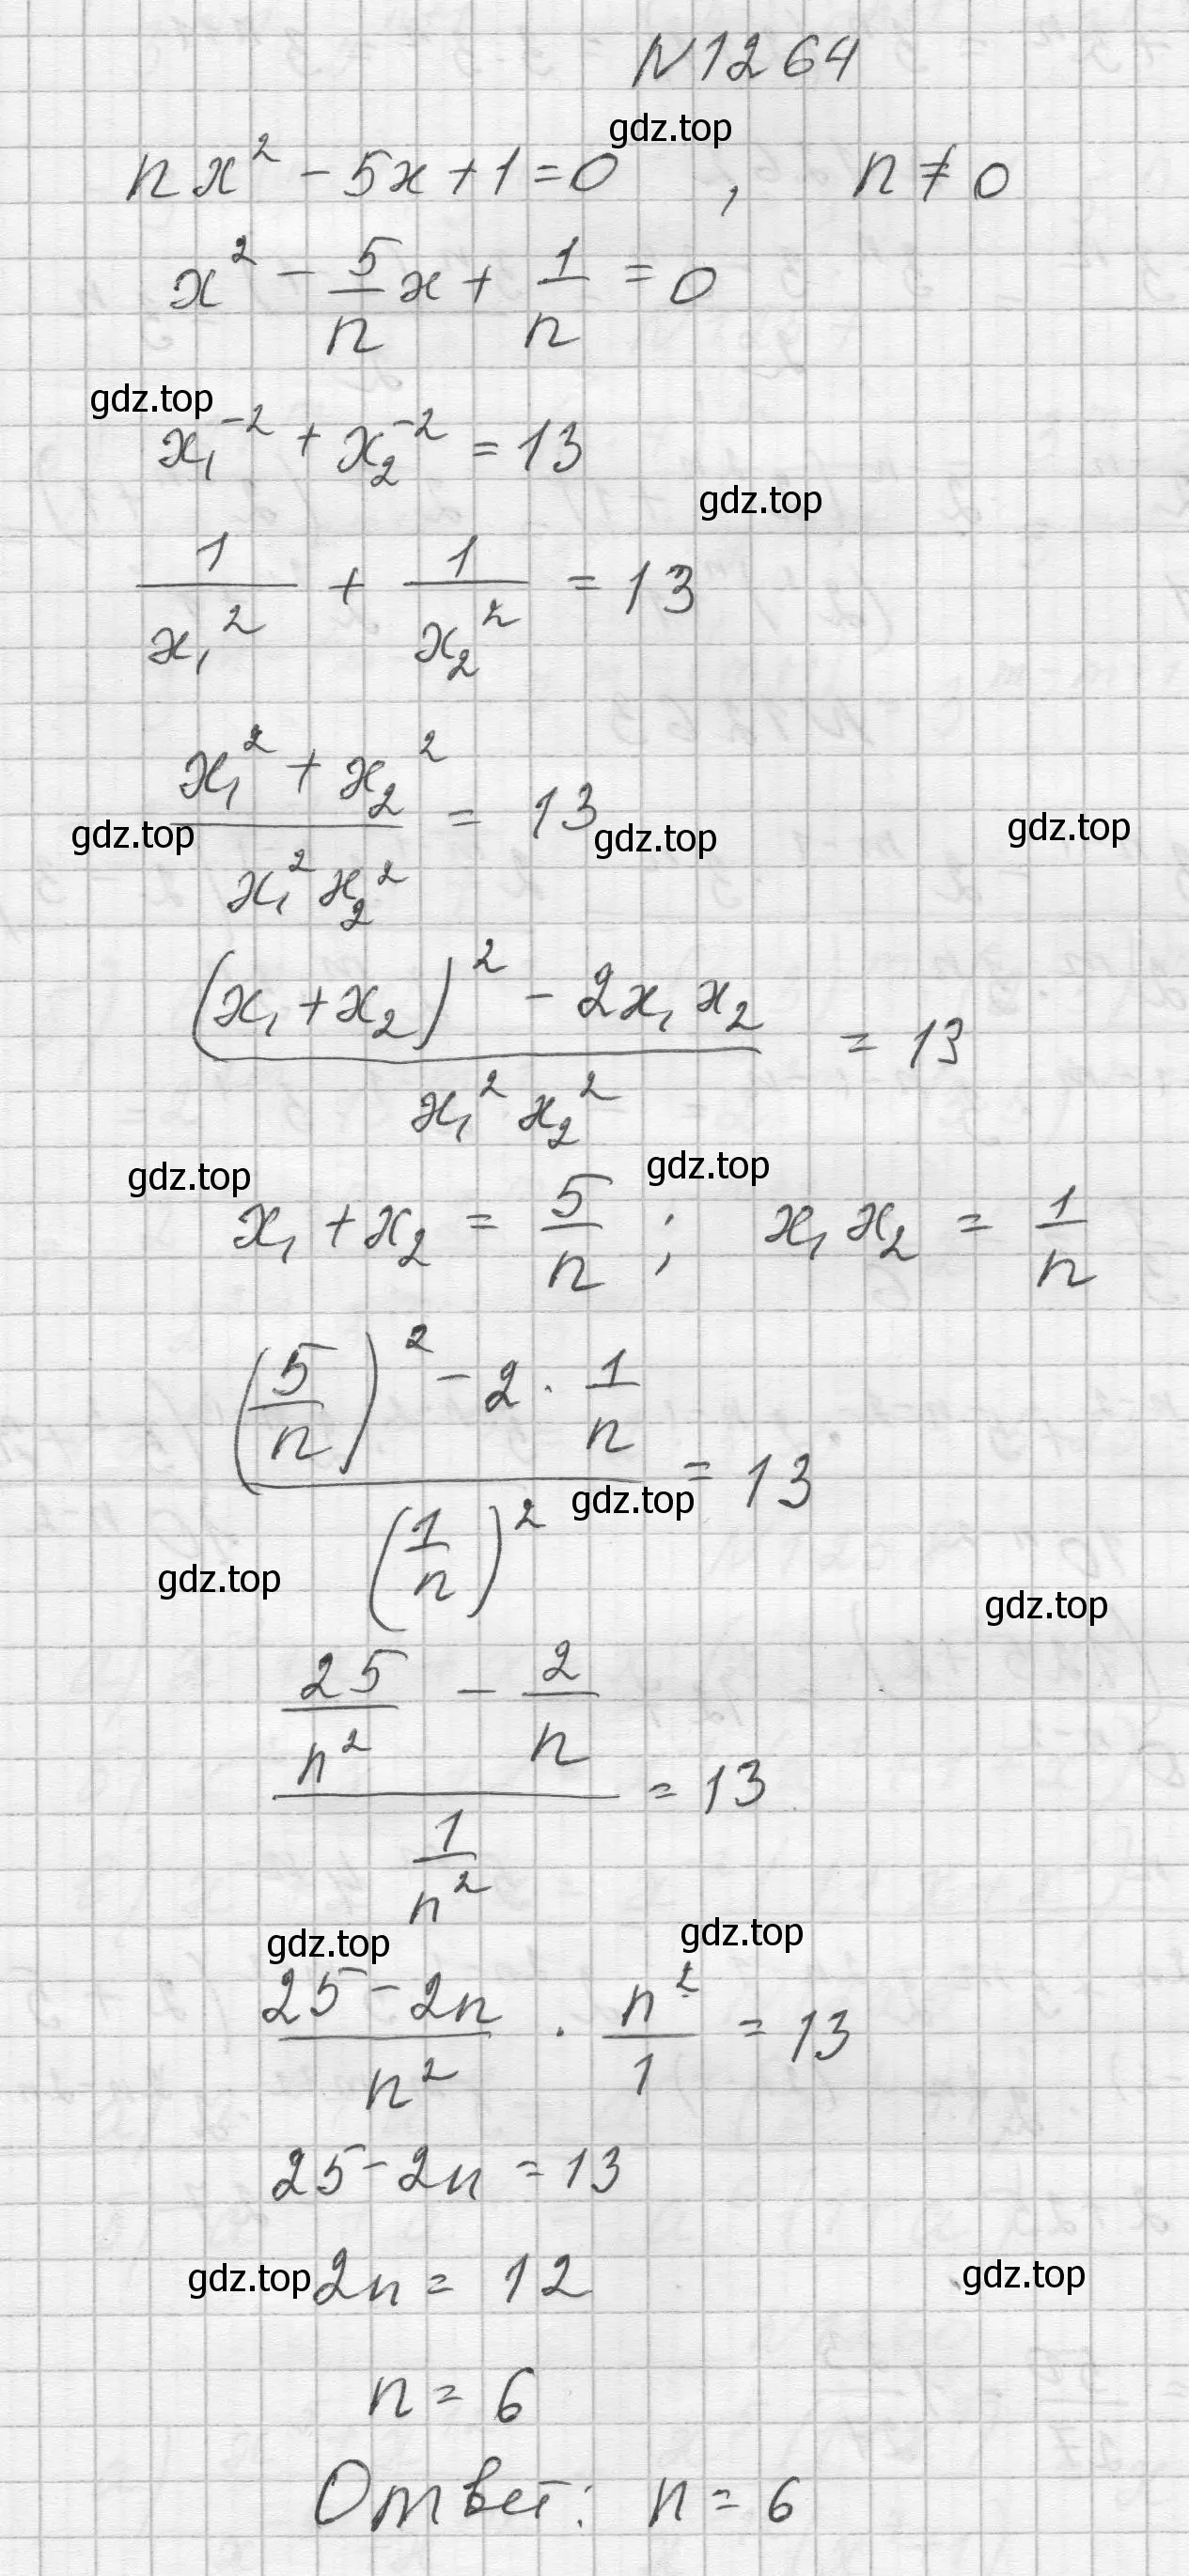 N1264
gdz.top
nx² - 5x + 1 = 0 , n ≠ 0
x² - 5/n x + 1/n = 0
gdz.top
x₁⁻² + x₂⁻² = 13
gdz.top
1/x₁² + 1/x₂² = 13
(x₁² + x₂²)/(x₁² x₂²) = 13
gdz.top gdz.top gdz.top
((x₁ + x₂)² - 2x₁ x₂)/(x₁² x₂²) = 13
gdz.top gdz.top
x₁ + x₂ = 5/n ; x₁ x₂ = 1/n
((5/n)² - 2 · 1/n)/(1/n)² = 13
gdz.top
gdz.top gdz.top
(25/n² - 2/n)/(1/n²) = 13
gdz.top gdz.top
(25 - 2n)/n² · n²/1 = 13
25 - 2n = 13
gdz.top 2n = 12 gdz.top
n = 6
Ответ: n = 6